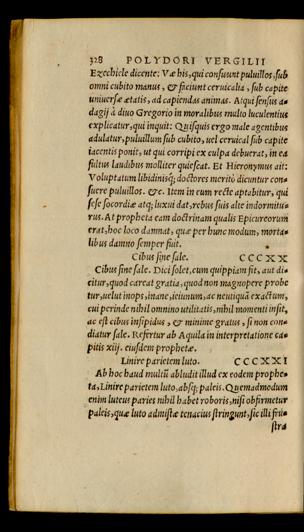 328 POLYDORI VERGILII
Ezechiele dicente: Væ his, qui consuunt puluillos, sub
omni cubito manus, & faciunt ceruicalia, sub capite
uniuersæ ætatis, ad capiendas animas. Atqui sensus a-
dagij à diuo Gregorio in moralibus multo luculentius
explicatur, qui inquit: Quisquis ergo male agentibus
adulatur, puluillum sub cubito, uel ceruical sub capite
iacentis ponit, ut qui corripi ex culpa debuerat, in ea
fultus laudibus molliter quiescat. Et Hieronymus ait:
Voluptatum libidinisq; doctores meritò dicuntur con-
suere puluillos. &c. Item in eum recte aptabitur, qui
sese socordiæ atq; luxui dat, rebus suis alte indormitu-
rus. At propheta eam doctrinam qualis Epicureorum
erat, hoc loco damnat, quæ per hunc modum, morta-
libus damno semper fuit.
Cibus sine sale. CCCXX
Cibus sine sale. Dici solet, cum quippiam sit, aut di-
citur, quod careat gratia, quod non magnopere probe
tur, uelut inops, inane, ieiunum, ac neutiquã exactum,
cui perinde nihil omnino utilitatis, nihil momenti insit,
ac est cibus insipidus, & minime gratus, si non con-
diatur sale. Refertur ab Aquila in interpretatione ca-
pitis xiij. eiusdem prophetæ.
Linire parietem luto. CCCXXI
Ab hoc haud multũ abludit illud ex eodem prophe-
ta, Linire parietem luto, absq; paleis. Quemadmodum
enim luteus paries nihil habet roboris, nisi obfirmetur
paleis, quæ luto admistæ tenacius stringunt, sic illi fru-
stra